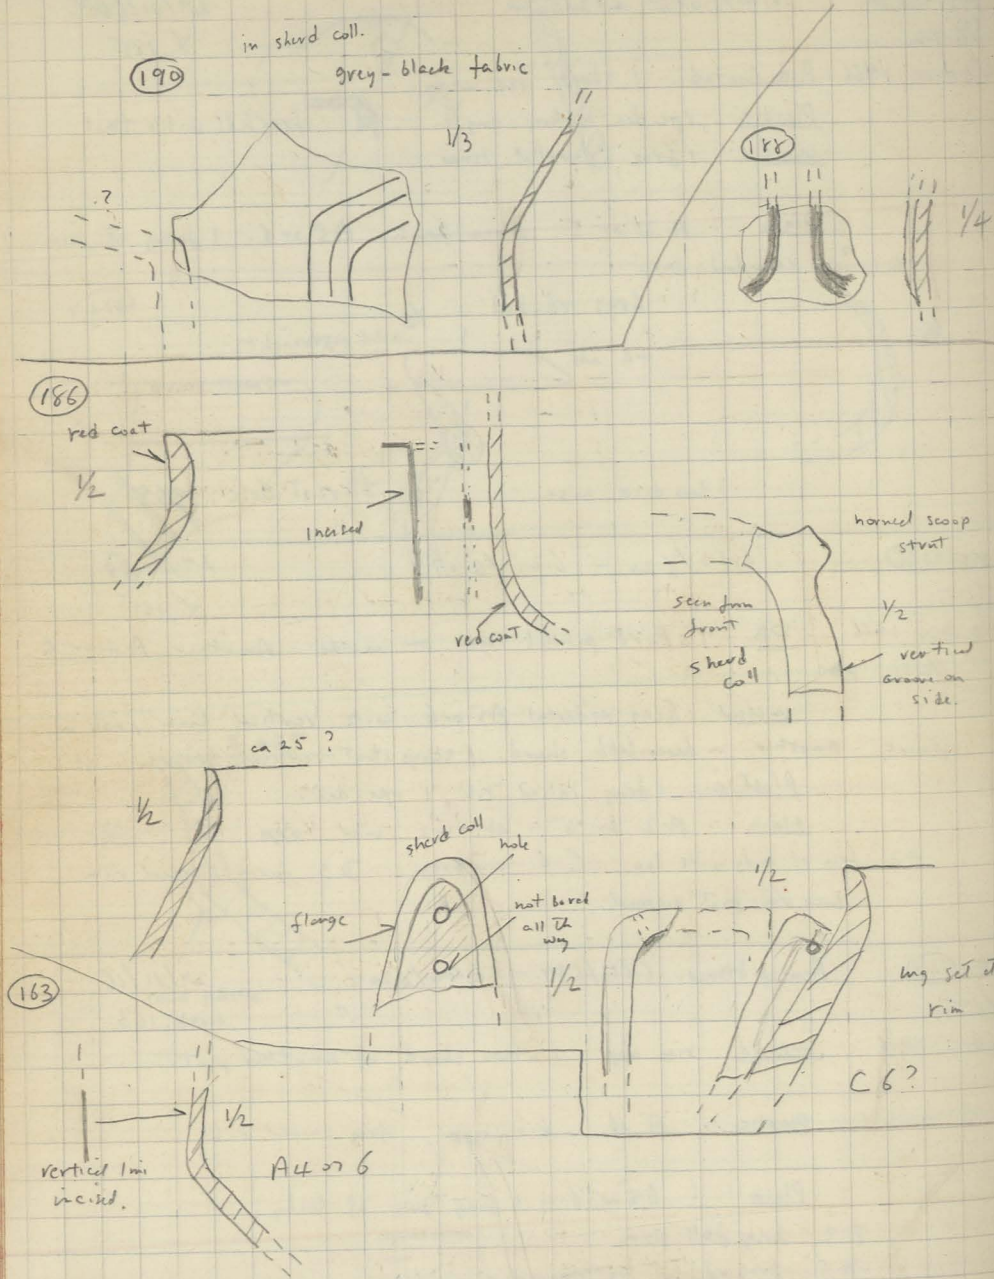 in sherd coll.
190
grey-black fabric
1/3
?
188
1/4
186
red coat
1/2
incised
red coat
horned scoop
strut
seen from
front
sherd
coll
1/2
vertical
groove on
side.
ca 25 ?
1/2
sherd coll
hole
flange
not bored
all th
way
1/2
1/2
set at
rim
C 6?
163
1/2
vertical line
incised.
A4 or 6